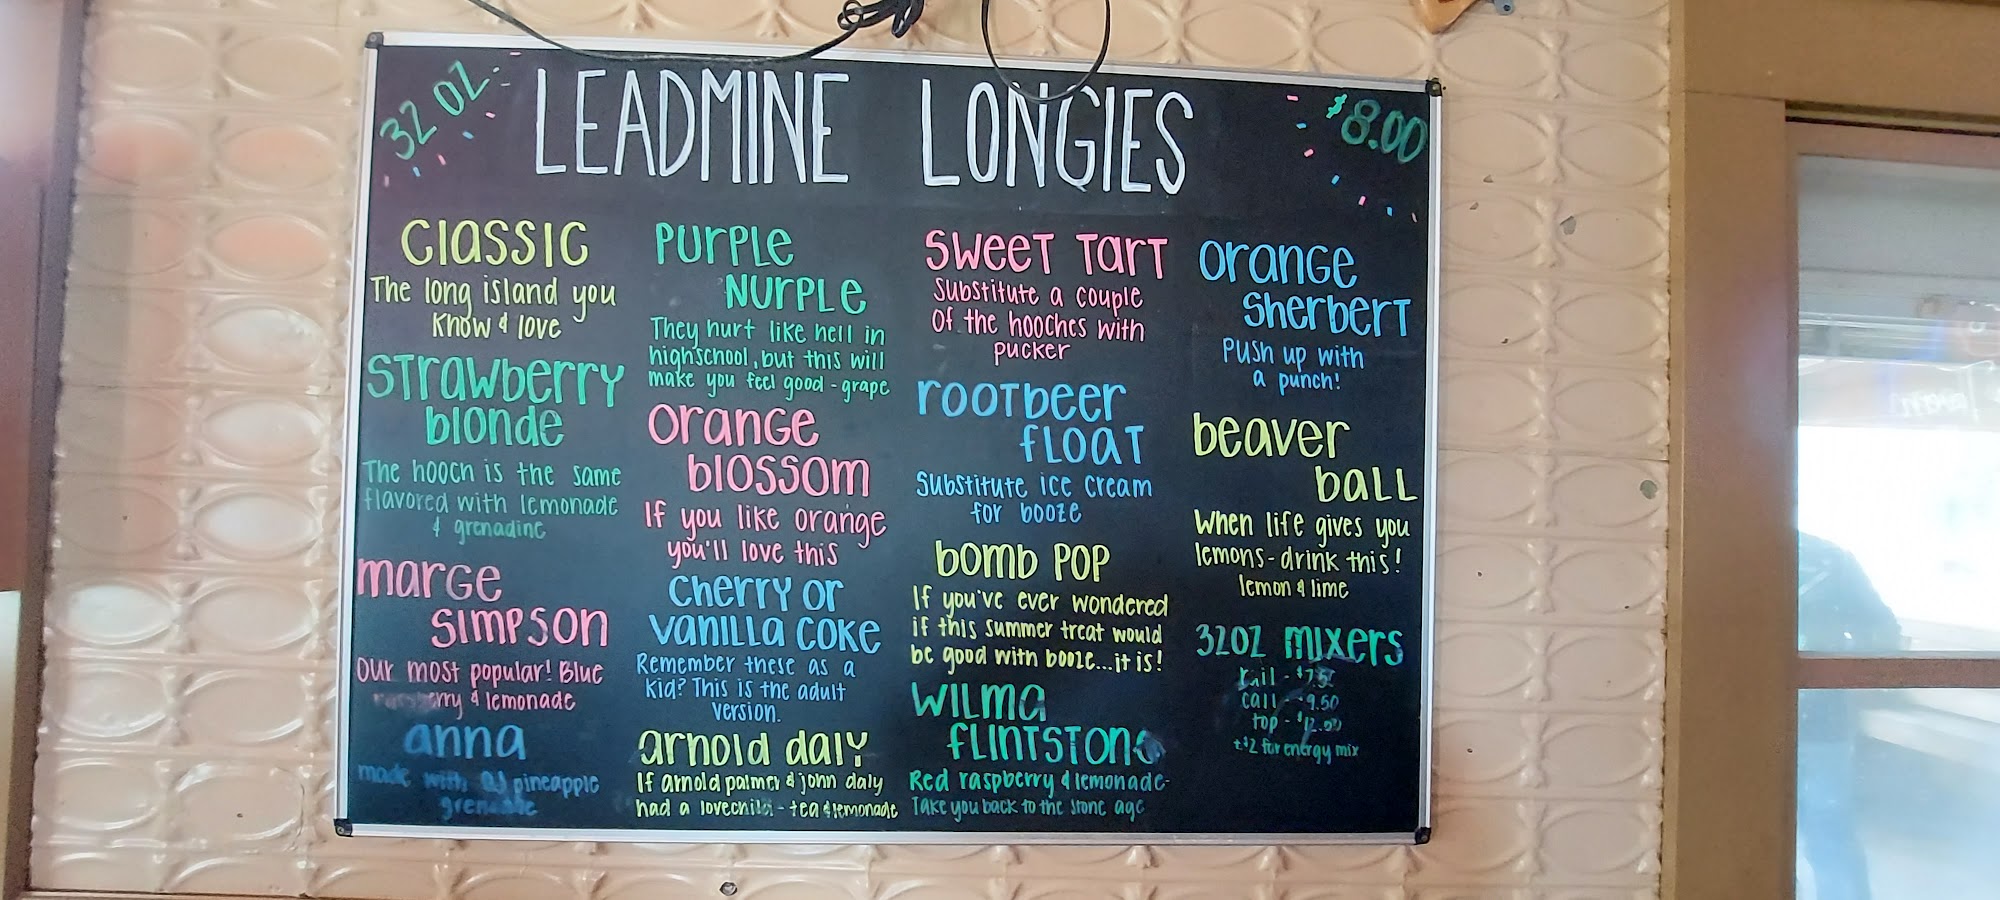 32 OZ
LEADMINE LONGIES
$8.00
Classic
The long island you
know & love
Strawberry
blonde
The hooch is the same
flavored with lemonade
& grenadine
marge
simpson
Our most popular! Blue
raspberry & lemonade
anna
made with OJ pineapple
Purple
Nurple
They hurt like hell in
highschool, but this will
make you feel good - grape
Orange
blossom
If you like orange
you'll love this
Cherry or
Vanilla Coke
Remember these as a
kid? This is the adult
version.
arnold daly
If arnold palmer & john daly
had a lovechild - tea & lemonade
Sweet Tart
Substitute a couple
of the hooches with
pucker
rootbeer
float
Substitute ice cream
for booze
bomb pop
If you've ever wondered
if this summer treat would
be good with booze...it is!
Wilma
Flintstone
Red raspberry & lemonade-
Take you back to the stone age
Orange
Sherbert
Push up with
a punch!
beaver
ball
When life gives you
lemons - drink this!
lemon & lime
32oz mixers
rail - $7.50
call - $9.50
top - $12.00
+$2 for energy mix